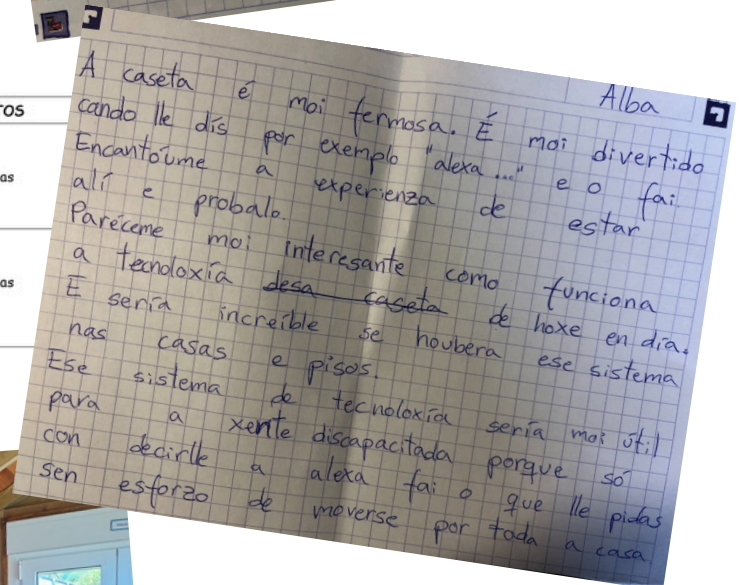 Alba
A caseta é moi fermosa. É moi divertido
cando lle dís por exemplo "alexa..." e o fai.
Encantoume a experienza de estar
alí e probalo.
Paréceme moi interesante como funciona
a tecnoloxía desa caseta de hoxe en día.
E sería increíble se houbera ese sistema
nas casas e pisos.
Ese sistema de tecnoloxía sería moi útil
para a xente discapacitada porque só
con decirlle a alexa fai o que lle pidas
sen esforzo de moverse por toda a casa
TOS
as
as